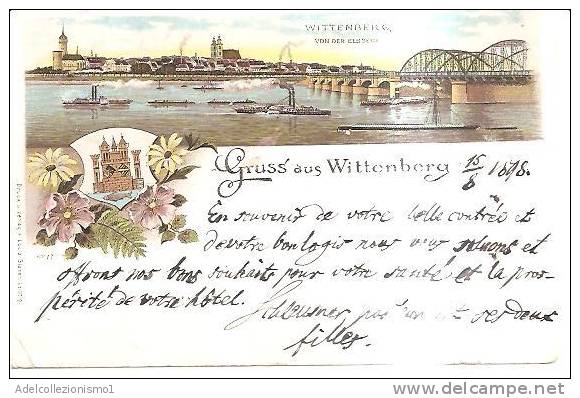 WITTENBERG,
VON DER ELBSEITE
Gruss aus Wittenberg 15/8 1898.
En souvenir de votre belle contrée et
de votre bon logis nous vous saluons et
offrons nos bons souhaits pour votre santé et la pros-
périté de votre hôtel.
ses deux
filles.
Adelcollezionismo1
delcampe.net